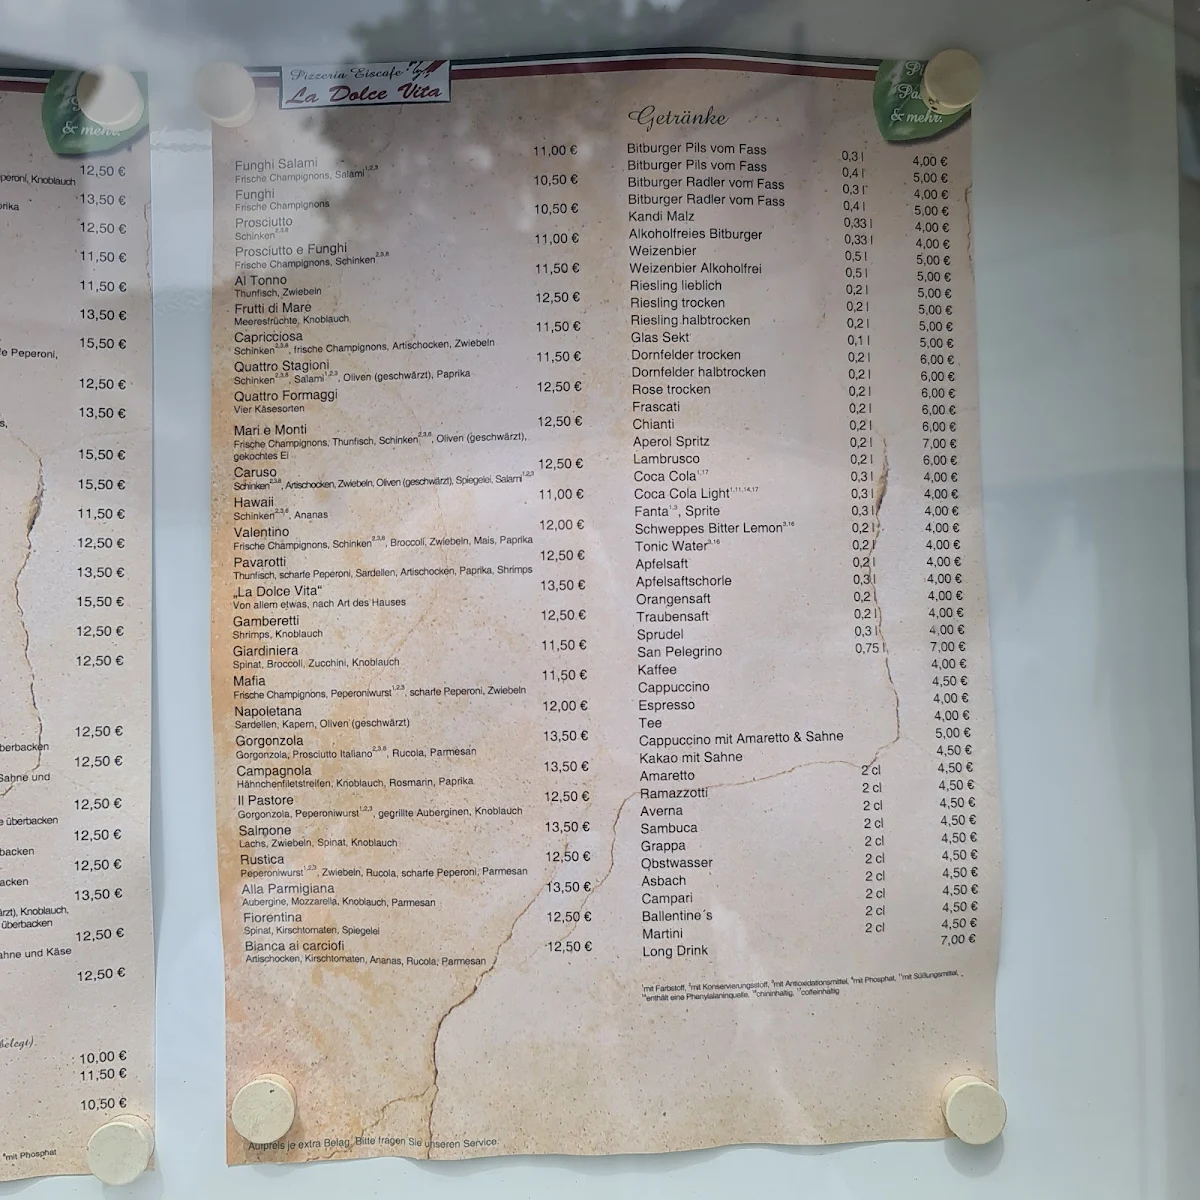 & mehr.
12,50 €
peroni, Knoblauch
13,50 €
rika
12,50 €
11,50 €
11,50 €
13,50 €
15,50 €
e Peperoni,
12,50 €
13,50 €
s,
15,50 €
15,50 €
11,50 €
12,50 €
13,50 €
15,50 €
12,50 €
12,50 €
12,50 €
berbacken
12,50 €
Sahne und
12,50 €
e überbacken
12,50 €
backen
12,50 €
acken
13,50 €
ärzt), Knoblauch,
überbacken
12,50 €
ahne und Käse
12,50 €
belegt).
10,00 €
11,50 €
10,50 €
⁸mit Phosphat
Pizzeria Eiscafe
La Dolce Vita
Funghi Salami 11,00 €
Frische Champignons, Salami¹,²,³
Funghi 10,50 €
Frische Champignons
Prosciutto 10,50 €
Schinken²,³,⁸
Prosciutto e Funghi 11,00 €
Frische Champignons, Schinken²,³,⁸
Al Tonno 11,50 €
Thunfisch, Zwiebeln
Frutti di Mare 12,50 €
Meeresfrüchte, Knoblauch
Capricciosa 11,50 €
Schinken²,³,⁸, frische Champignons, Artischocken, Zwiebeln
Quattro Stagioni 11,50 €
Schinken²,³,⁸, Salami¹,²,³, Oliven (geschwärzt), Paprika
Quattro Formaggi 12,50 €
Vier Käsesorten
Mari e Monti 12,50 €
Frische Champignons, Thunfisch, Schinken²,³,⁸, Oliven (geschwärzt),
gekochtes Ei
Caruso 12,50 €
Schinken²,³,⁸, Artischocken, Zwiebeln, Oliven (geschwärzt), Spiegelei, Salami¹,²,³
Hawaii 11,00 €
Schinken²,³,⁸, Ananas
Valentino 12,00 €
Frische Champignons, Schinken²,³,⁸, Broccoli, Zwiebeln, Mais, Paprika
Pavarotti 12,50 €
Thunfisch, scharfe Peperoni, Sardellen, Artischocken, Paprika, Shrimps
„La Dolce Vita“ 13,50 €
Von allem etwas, nach Art des Hauses
Gamberetti 12,50 €
Shrimps, Knoblauch
Giardiniera 11,50 €
Spinat, Broccoli, Zucchini, Knoblauch
Mafia 11,50 €
Frische Champignons, Peperoniwurst¹,²,³, scharfe Peperoni, Zwiebeln
Napoletana 12,00 €
Sardellen, Kapern, Oliven (geschwärzt)
Gorgonzola 13,50 €
Gorgonzola, Prosciutto Italiano²,³,⁸, Rucola, Parmesan
Campagnola 13,50 €
Hähnchenfiletstreifen, Knoblauch, Rosmarin, Paprika
Il Pastore 12,50 €
Gorgonzola, Peperoniwurst¹,²,³, gegrillte Auberginen, Knoblauch
Salmone 13,50 €
Lachs, Zwiebeln, Spinat, Knoblauch
Rustica 12,50 €
Peperoniwurst¹,²,³, Zwiebeln, Rucola, scharfe Peperoni, Parmesan
Alla Parmigiana 13,50 €
Aubergine, Mozzarella, Knoblauch, Parmesan
Fiorentina 12,50 €
Spinat, Kirschtomaten, Spiegelei
Bianca ai carciofi 12,50 €
Artischocken, Kirschtomaten, Ananas, Rucola, Parmesan
Aufpreis je extra Belag. Bitte fragen Sie unseren Service.
& mehr.
Getränke
Bitburger Pils vom Fass 0,3 l 4,00 €
Bitburger Pils vom Fass 0,4 l 5,00 €
Bitburger Radler vom Fass 0,3 l 4,00 €
Bitburger Radler vom Fass 0,4 l 5,00 €
Kandi Malz 0,33 l 4,00 €
Alkoholfreies Bitburger 0,33 l 4,00 €
Weizenbier 0,5 l 5,00 €
Weizenbier Alkoholfrei 0,5 l 5,00 €
Riesling lieblich 0,2 l 5,00 €
Riesling trocken 0,2 l 5,00 €
Riesling halbtrocken 0,2 l 5,00 €
Glas Sekt 0,1 l 5,00 €
Dornfelder trocken 0,2 l 6,00 €
Dornfelder halbtrocken 0,2 l 6,00 €
Rose trocken 0,2 l 6,00 €
Frascati 0,2 l 6,00 €
Chianti 0,2 l 6,00 €
Aperol Spritz 0,2 l 7,00 €
Lambrusco 0,2 l 6,00 €
Coca Cola¹,¹⁷ 0,3 l 4,00 €
Coca Cola Light¹,¹¹,¹⁴,¹⁷ 0,3 l 4,00 €
Fanta¹,³, Sprite 0,3 l 4,00 €
Schweppes Bitter Lemon³,¹⁶ 0,2 l 4,00 €
Tonic Water³,¹⁶ 0,2 l 4,00 €
Apfelsaft 0,2 l 4,00 €
Apfelsaftschorle 0,3 l 4,00 €
Orangensaft 0,2 l 4,00 €
Traubensaft 0,2 l 4,00 €
Sprudel 0,3 l 4,00 €
San Pelegrino 0,75 l 7,00 €
Kaffee 4,00 €
Cappuccino 4,50 €
Espresso 4,00 €
Tee 4,00 €
Cappuccino mit Amaretto & Sahne 5,00 €
Kakao mit Sahne 4,50 €
Amaretto 2 cl 4,50 €
Ramazzotti 2 cl 4,50 €
Averna 2 cl 4,50 €
Sambuca 2 cl 4,50 €
Grappa 2 cl 4,50 €
Obstwasser 2 cl 4,50 €
Asbach 2 cl 4,50 €
Campari 2 cl 4,50 €
Ballentine´s 2 cl 4,50 €
Martini 2 cl 4,50 €
Long Drink 7,00 €
¹mit Farbstoff, ²mit Konservierungsstoff, ³mit Antioxidationsmittel, ⁸mit Phosphat, ¹¹mit Süßungsmittel,
¹⁴enthält eine Phenylalaninquelle, ¹⁶chininhaltig, ¹⁷coffeinhaltig